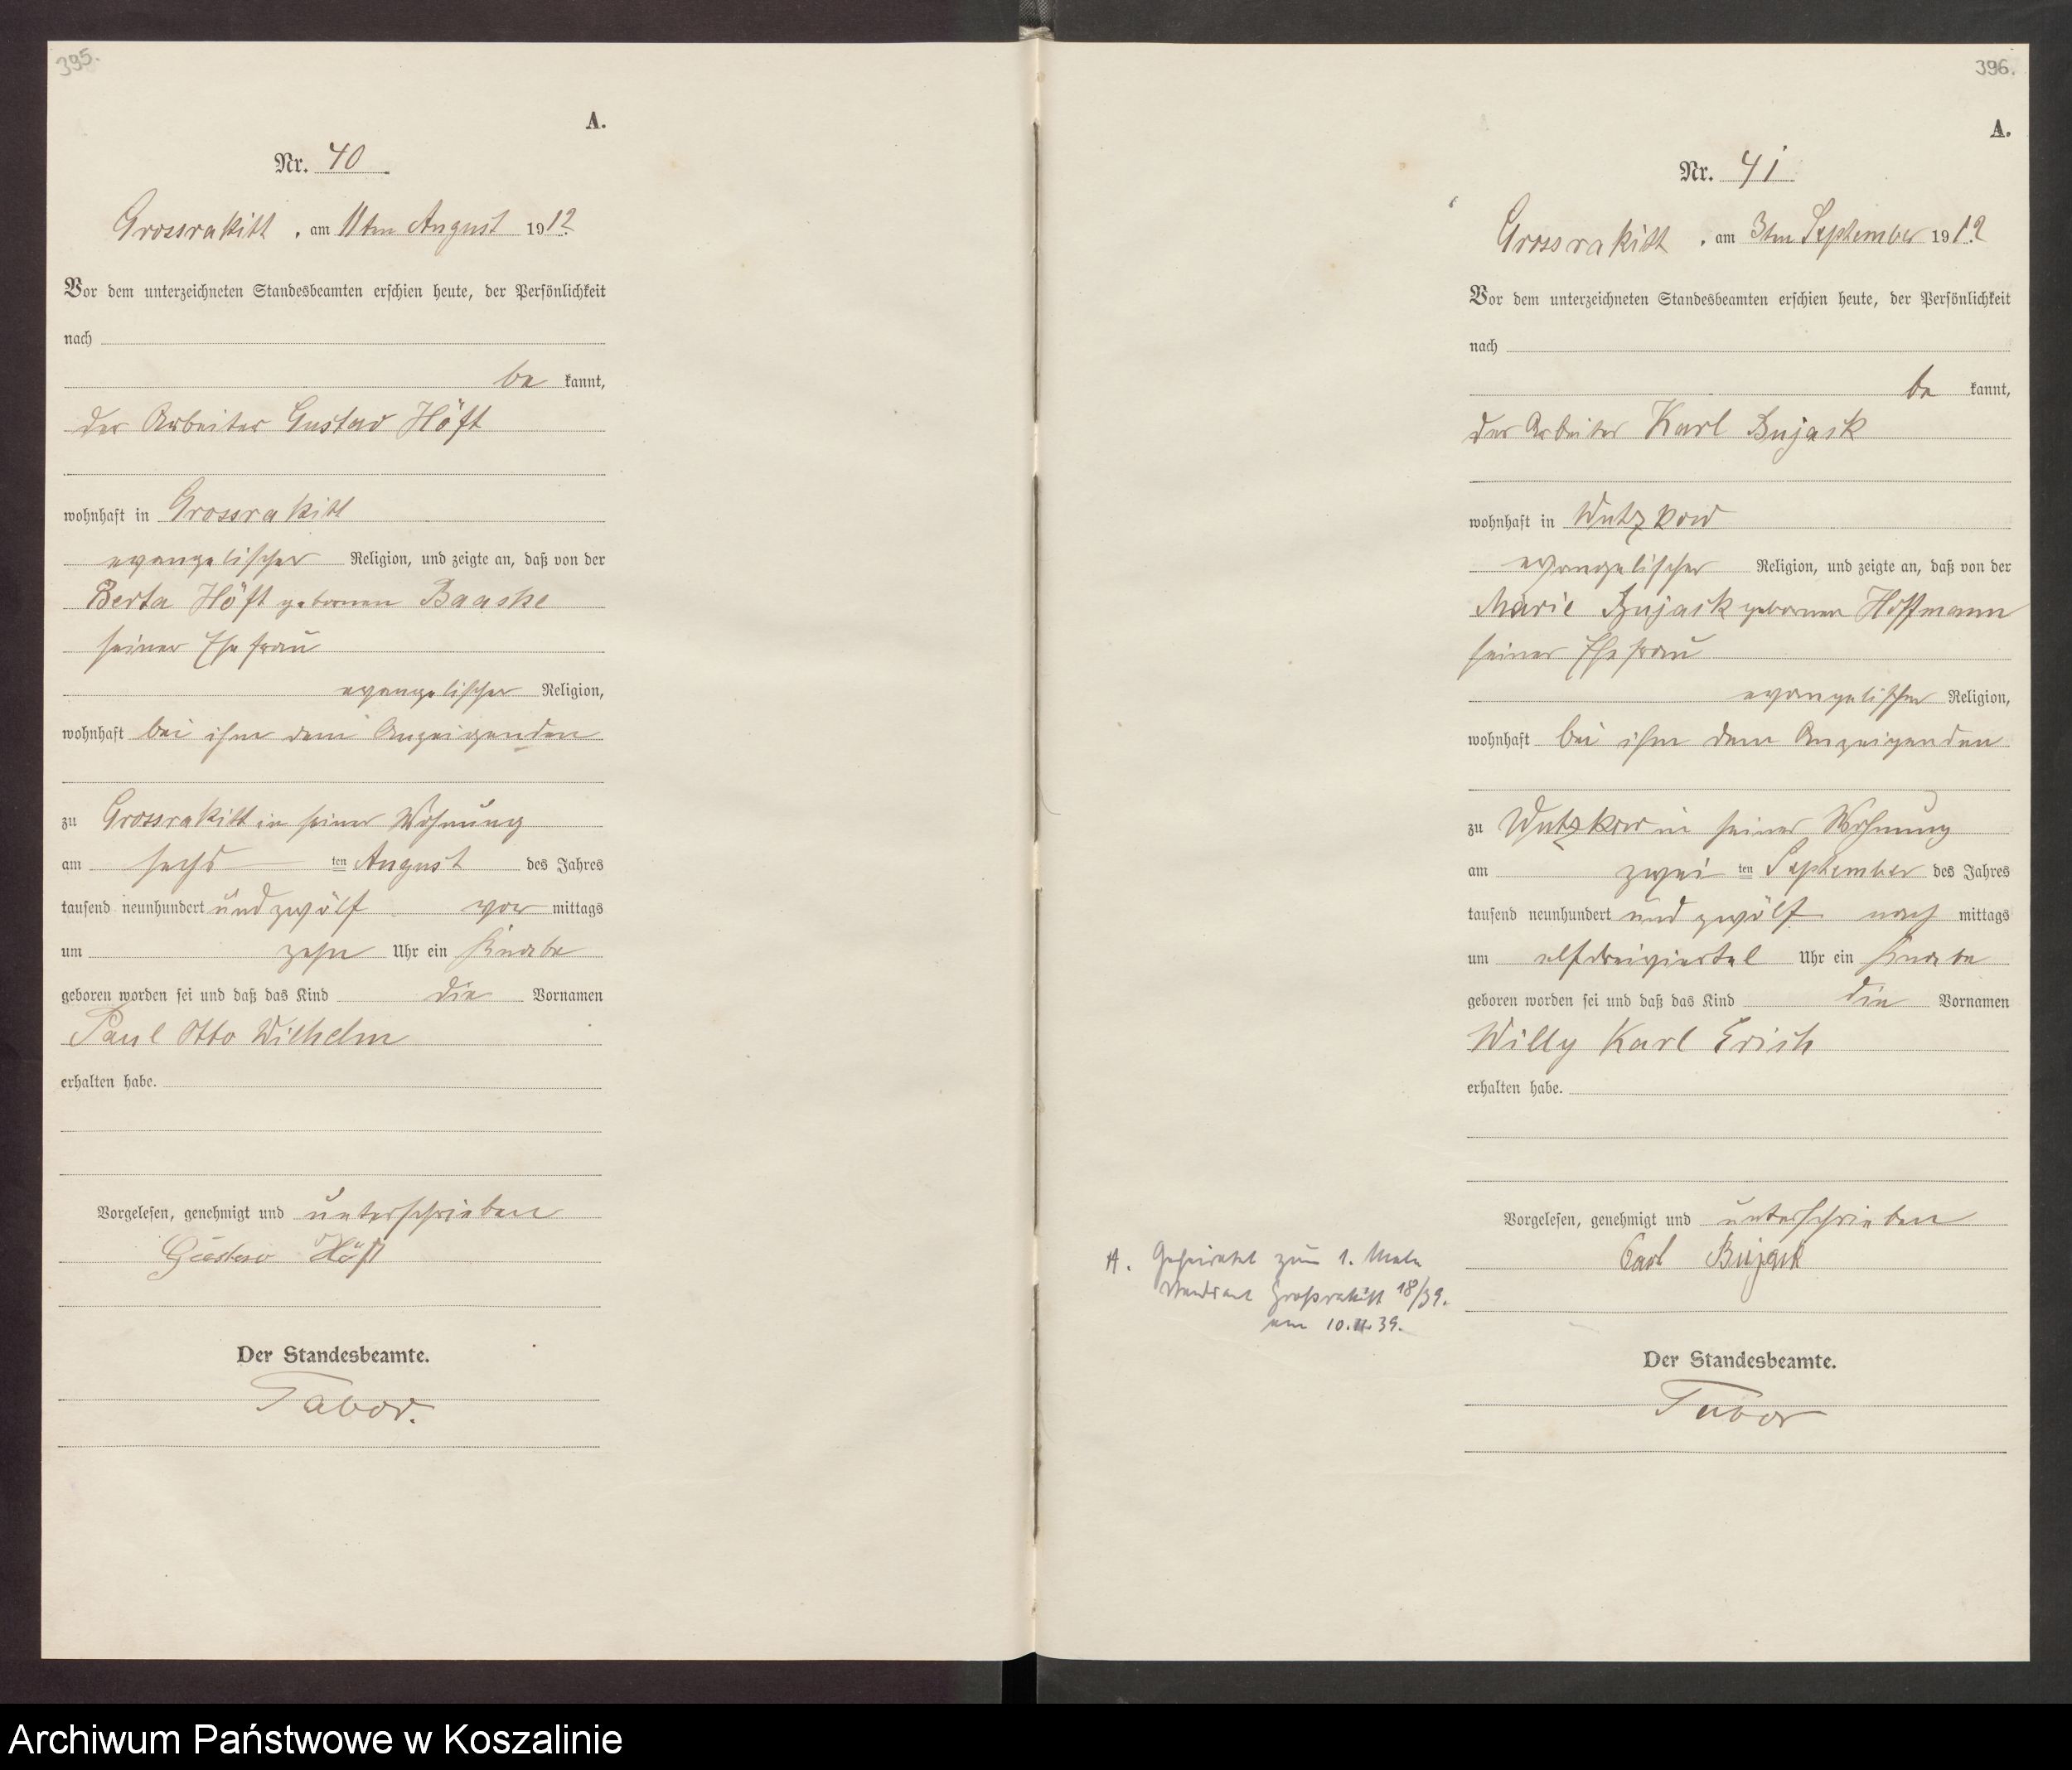 395.
A.
Nr. 40
Grossrakitt, am 11ten August 1912.
Vor dem unterzeichneten Standesbeamten erschien heute, der Persönlichkeit
nach
be kannt,
der Arbeiter Gustav Höft
wohnhaft in Grossrakitt
evangelischer Religion, und zeigte an, daß von der
Berta Höft geborenen Baaske
seiner Ehefrau
evangelischer Religion,
wohnhaft bei ihm dem Anzeigenden
zu Grossrakitt in seiner Wohnung
am sechs ten August des Jahres
tausend neunhundert und zwölf vor mittags
um zehn Uhr ein Knabe
geboren worden sei und daß das Kind die Vornamen
Paul Otto Wilhelm
erhalten habe.
Vorgelesen, genehmigt und unterschrieben
Gustav Höft
Der Standesbeamte.
Tabor.
396.
A.
Nr. 41
Grossrakitt, am 3ten September 1912
Vor dem unterzeichneten Standesbeamten erschien heute, der Persönlichkeit
nach
be kannt,
der Arbeiter Karl Bujack
wohnhaft in Wutzkow
evangelischer Religion, und zeigte an, daß von der
Marie Bujack geborenen Hoffmann
seiner Ehefrau
evangelischer Religion,
wohnhaft bei ihm dem Anzeigenden
zu Wutzkow in seiner Wohnung
am zwei ten September des Jahres
tausend neunhundert und zwölf nach mittags
um elfdreiviertel Uhr ein Knabe
geboren worden sei und daß das Kind die Vornamen
Willy Karl Erich
erhalten habe.
Vorgelesen, genehmigt und unterschrieben
Carl Bujack
Der Standesbeamte.
Tabor
A. Geheiratet zum 1. Male
Standesamt Großrakitt 18/39.
am 10.11.39.
Archiwum Państwowe w Koszalinie